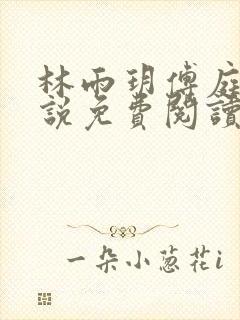 林雨玥傅庭
說免費閱讀
一朵小蔥花i